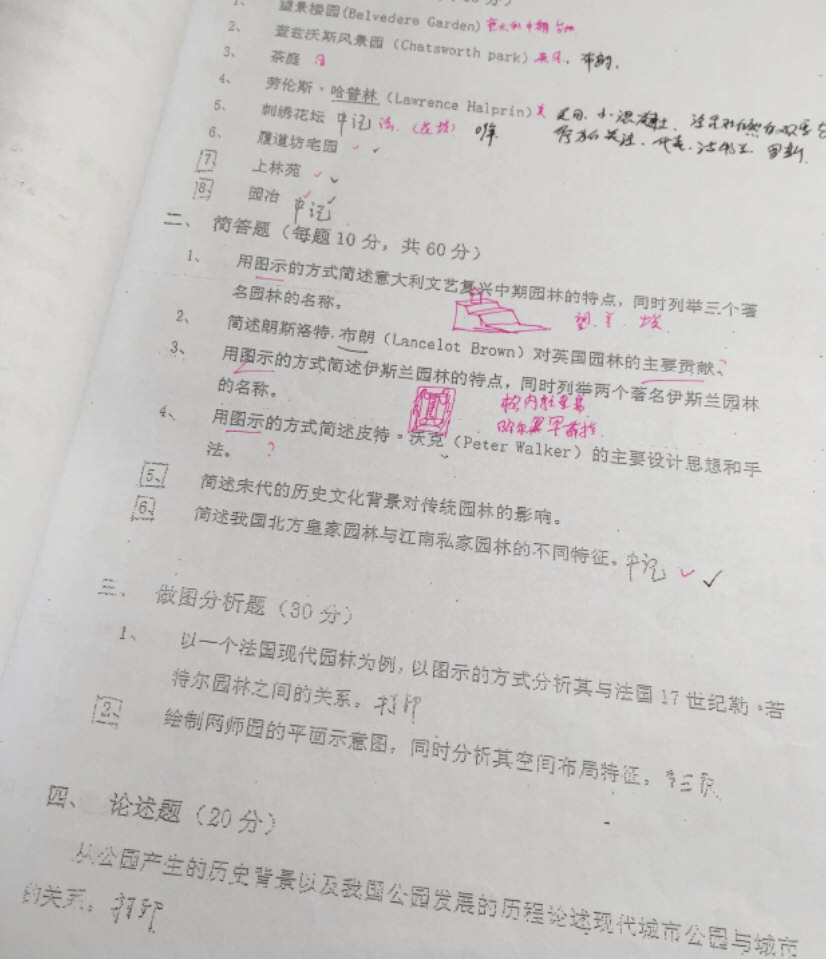 1、 望景楼园(Belvedere Garden) 意大利中期 台地
2、 查兹沃斯风景园（Chatsworth park）英风，布朗、
3、 茶庭 日
4、 劳伦斯·哈普林（Lawrence Halprin）美
5、 刺绣花坛 中记 法
6、 履道坊宅园
7、 上林苑
8、 园冶 中记
二、 简答题（每题10分，共60分）
1、 用图示的方式简述意大利文艺复兴中期园林的特点，同时列举三个著
名园林的名称。
2、 简述朗斯洛特.布朗（Lancelot Brown）对英国园林的主要贡献。
3、 用图示的方式简述伊斯兰园林的特点，同时列举两个著名伊斯兰园林
的名称。
4、 用图示的方式简述皮特·沃克（Peter Walker）的主要设计思想和手
法。 ?
5、 简述宋代的历史文化背景对传统园林的影响。
6、 简述我国北方皇家园林与江南私家园林的不同特征。中记
三、 做图分析题（30分）
1、 以一个法国现代园林为例，以图示的方式分析其与法国17世纪勒·若
特尔园林之间的关系。打印
2、 绘制网师园的平面示意图，同时分析其空间布局特征。
四、 论述题（20分）
从公园产生的历史背景以及我国公园发展的历程论述现代城市公园与城市
的关系。打印